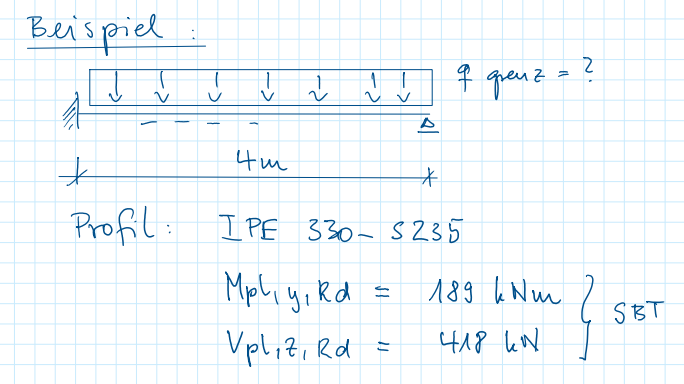 Beispiel :
q grenz = ?
4m
Profil : IPE 330 - S235
Mpl,y,Rd = 189 kNm
Vpl,z,Rd = 418 kN
SBT